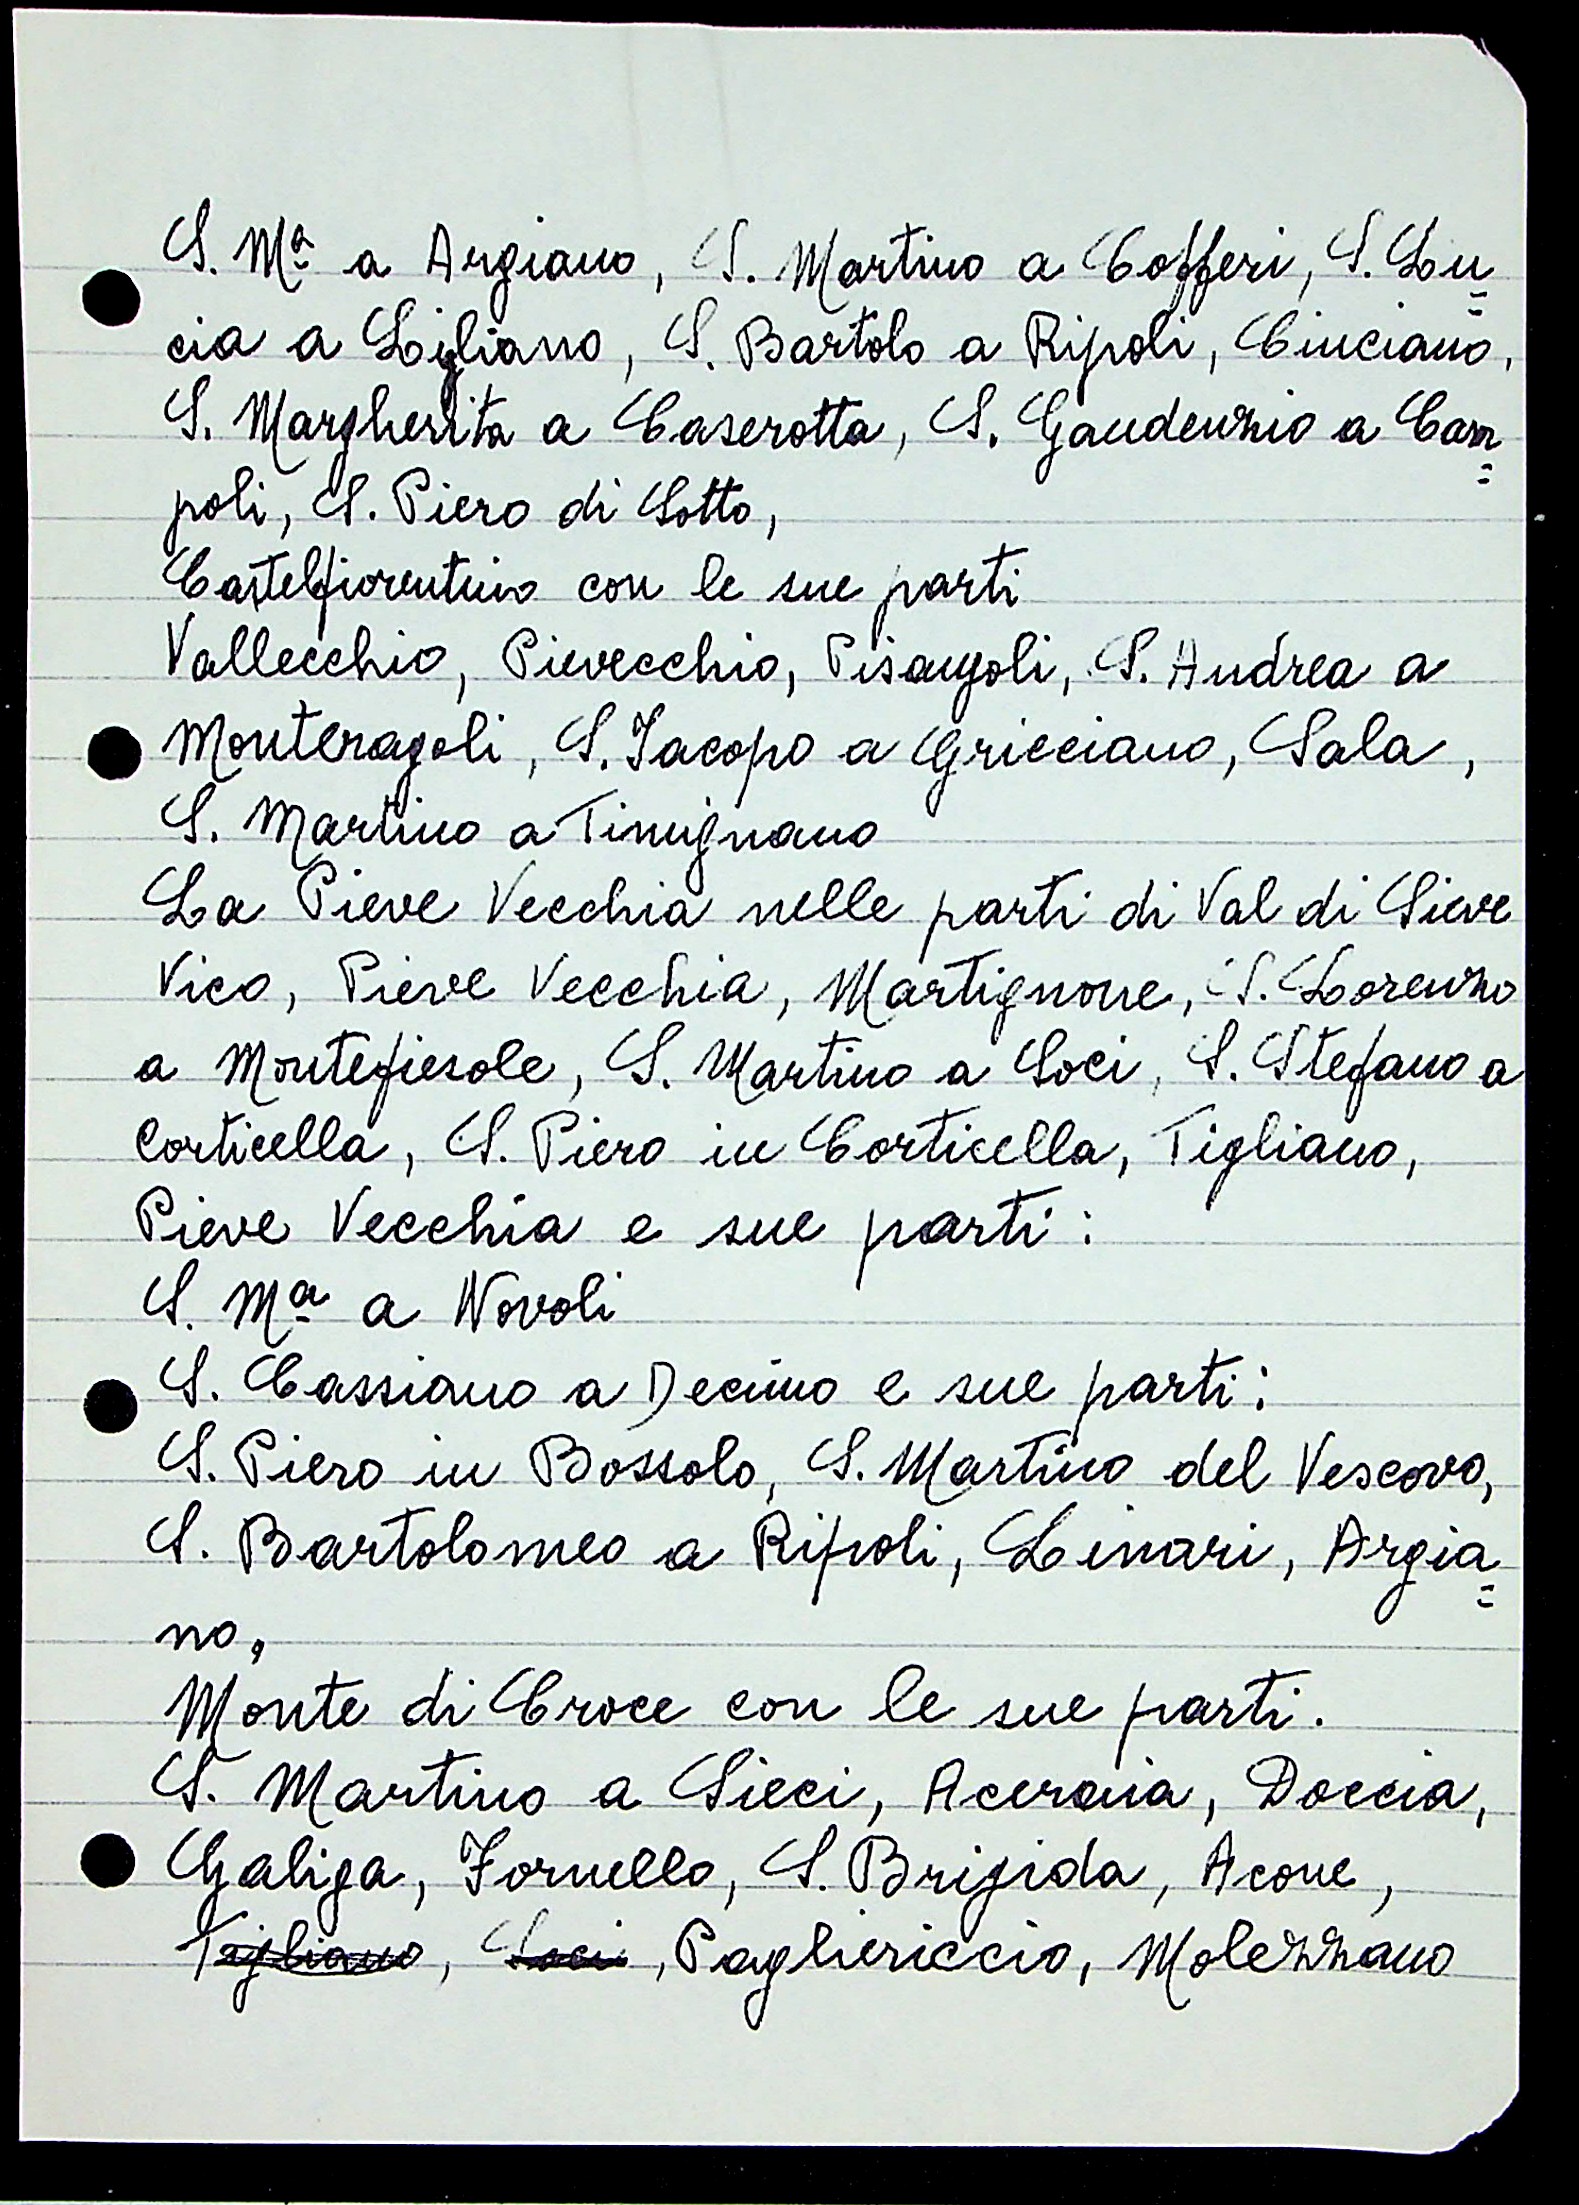 S. Mª a Argiano, S. Martino a Cofferi, S. Lu=
cia a Ligliano, S. Bartolo a Ripoli, Cinciano,
S. Margherita a Caserotta, S. Gaudenzio a Cam=
poli, S. Piero di Sotto,
Castelfiorentino con le sue parti
Vallecchio, Pievecchio, Pisangoli, S. Andrea a
Monteragoli, S. Iacopo a Gricciano, Sala,
S. Martino a Timignano
La Pieve Vecchia nelle parti di Val di Sieve
Vico, Pieve Vecchia, Martignone, S. Lorenzo
a Montefiesole, S. Martino a Soci, S. Stefano a
Corticella, S. Piero in Corticella, Tigliano,
Pieve Vecchia e sue parti:
S. Mª a Novoli
S. Cassiano a Decimo e sue parti:
S. Piero in Bossolo, S. Martino del Vescovo,
S. Bartolomeo a Ripoli, Linari, Argia=
no,
Monte di Croce con le sue parti.
S. Martino a Sieci, Aceraia, Doccia,
Galiga, Fornello, S. Brigida, Acone,
Tigliano, Soci, Pagliericcio, Molezzano